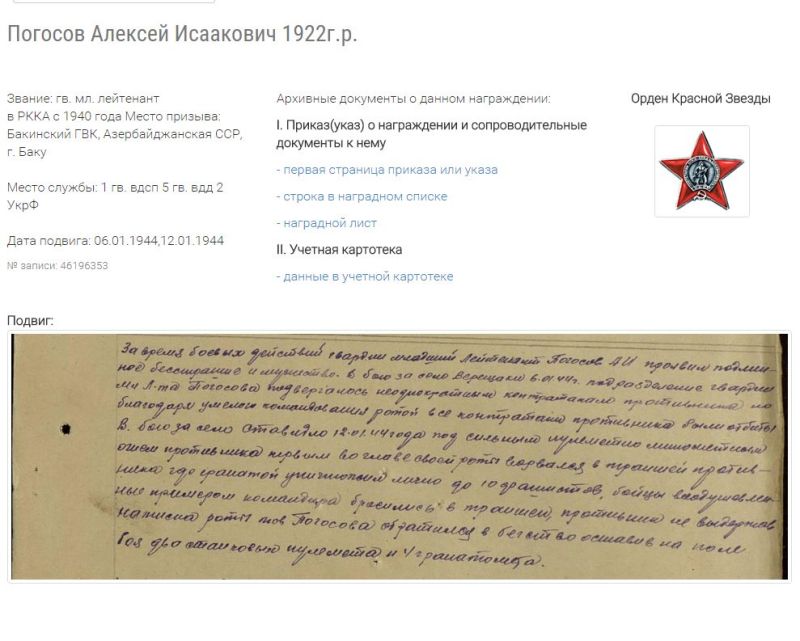 Погосов Алексей Исаакович 1922г.р.
Звание: гв. мл. лейтенант
в РККА с 1940 года Место призыва:
Бакинский ГВК, Азербайджанская ССР,
г. Баку
Место службы: 1 гв. вдсп 5 гв. вдд 2
УкрФ
Дата подвига: 06.01.1944,12.01.1944
№ записи: 46196353
Архивные документы о данном награждении:
I. Приказ(указ) о награждении и сопроводительные
документы к нему
- первая страница приказа или указа
- строка в наградном списке
- наградной лист
II. Учетная картотека
- данные в учетной картотеке
Орден Красной Звезды
Подвиг:
За время боевых действий гвардии младший Лейтенант Погосов А И проявил подлин-
ное бесстрашие и мужество. В бою за село Верещаки 6.01.44г. подразделение гвардии
мл Л-та Погосова подвергалось неоднократным контратакам противника но
благодаря умелому командованию ротой все контратаки противника были отбиты
В бою за село Ставидло 12.01.44 года под сильным пулеметно минометным
огнем противника первым во главе своей роты ворвался в траншеи против-
ника где гранатой уничтожил лично до 10 фашистов, бойцы воодушевлен-
ные примером командира бросились в траншеи, противник не выдержав
натиска роты тов Погосова обратился в бегство оставив на поле
боя два станковых пулемета и 4 гранатомета.